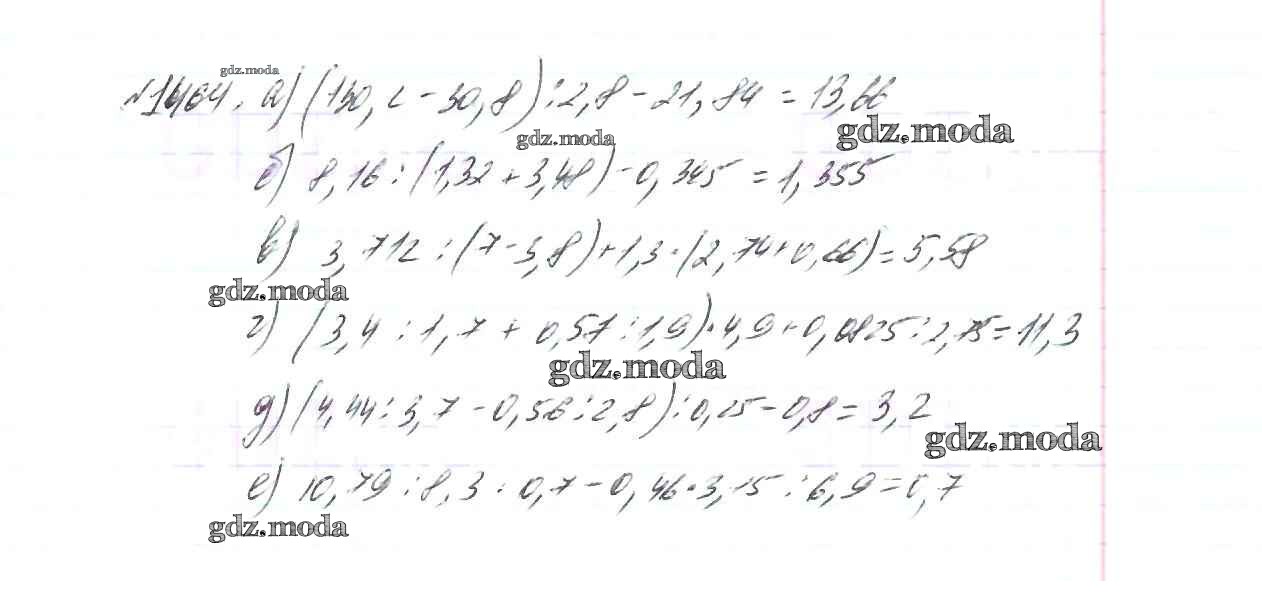 gdz.moda
№1464. а) (130,2 - 30,8) : 2,8 - 21,84 = 13,66
gdz.moda
gdz.moda
б) 8,16 : (1,32 + 3,48) - 0,345 = 1,355
в) 3,712 : (7 - 3,8) + 1,3 · (2,74 + 0,66) = 5,58
gdz.moda
г) (3,4 : 1,7 + 0,57 : 1,9) · 4,9 + 0,0825 : 2,75 = 11,3
gdz.moda
д) (4,44 : 3,7 - 0,56 : 2,8) : 0,25 - 0,8 = 3,2
gdz.moda
е) 10,79 : 8,3 · 0,7 - 0,46 · 3,15 : 6,9 = 0,7
gdz.moda